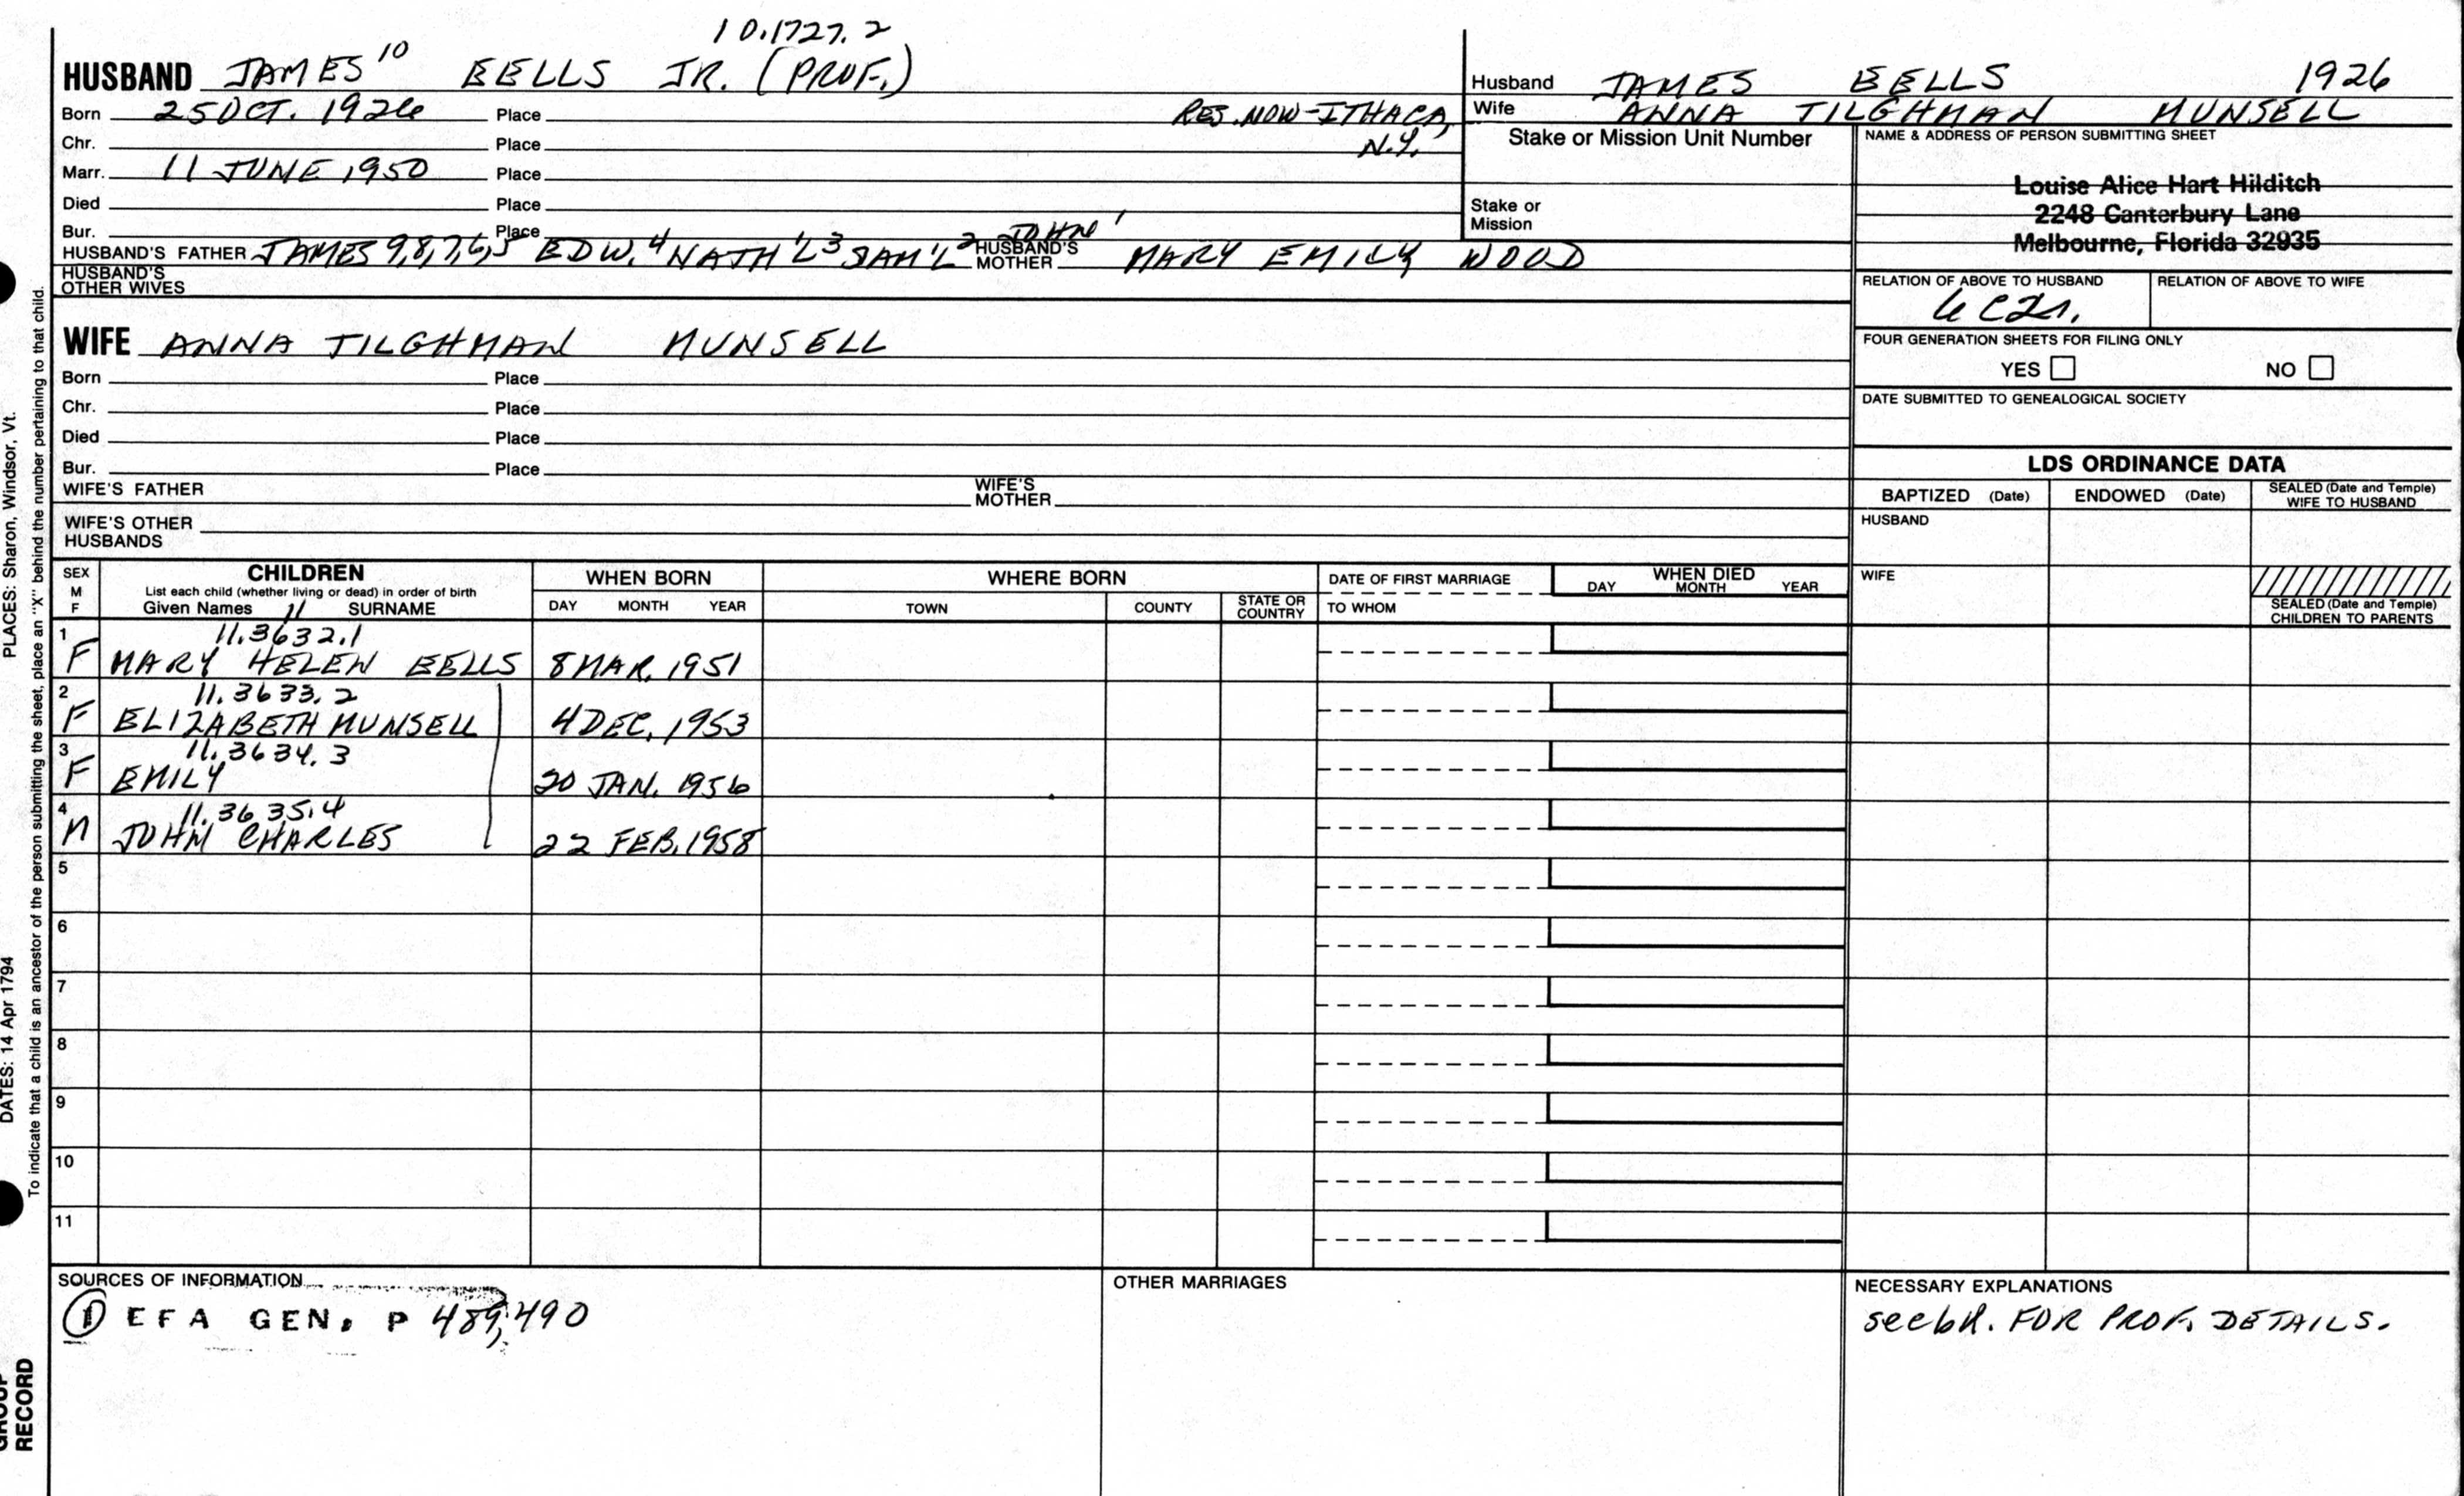 10.1727.2
HUSBAND JAMES 10 EELLS JR. (PROF.)
Born 25 OCT. 1926 Place RES. NOW-ITHACA, N.Y.
Chr. Place
Marr. 11 JUNE 1950 Place
Died Place
Bur. Place
HUSBAND'S FATHER JAMES 9,8,7,6,5 EDW. 4 NATH'L 3 SAM'L 2 JOHN 1 HUSBAND'S MOTHER MARY EMILY WOOD
HUSBAND'S OTHER WIVES
WIFE ANNA TILGHMAN MUNSELL
Born Place
Chr. Place
Died Place
Bur. Place
WIFE'S FATHER WIFE'S MOTHER
WIFE'S OTHER HUSBANDS
Husband JAMES EELLS 1926
Wife ANNA TILGHMAN MUNSELL
Stake or Mission Unit Number
Stake or Mission
NAME & ADDRESS OF PERSON SUBMITTING SHEET
Louise Alice Hart Hilditch
2248 Canterbury Lane
Melbourne, Florida 32935
RELATION OF ABOVE TO HUSBAND RELATION OF ABOVE TO WIFE
FOUR GENERATION SHEETS FOR FILING ONLY
YES NO
DATE SUBMITTED TO GENEALOGICAL SOCIETY
LDS ORDINANCE DATA
BAPTIZED (Date) ENDOWED (Date) SEALED (Date and Temple) WIFE TO HUSBAND
HUSBAND
WIFE
SEALED (Date and Temple) CHILDREN TO PARENTS
SEX M F CHILDREN WHEN BORN WHERE BORN DATE OF FIRST MARRIAGE WHEN DIED
List each child (whether living or dead) in order of birth
Given Names 11 SURNAME DAY MONTH YEAR TOWN COUNTY STATE OR COUNTRY TO WHOM DAY MONTH YEAR
1 11.3632.1
F MARY HELEN EELLS 8 MAR. 1951
2 11.3633.2
F ELIZABETH MUNSELL 4 DEC. 1953
3 11.3634.3
F EMILY 20 JAN. 1956
4 11.3635.4
M JOHN CHARLES 22 FEB. 1958
5
6
7
8
9
10
11
SOURCES OF INFORMATION
1 EFA GEN. P 489,490
OTHER MARRIAGES
NECESSARY EXPLANATIONS
FOR PROF. DETAILS.
PLACES: Sharon, Windsor, Vt.
DATES: 14 Apr 1794
To indicate that a child is an ancestor of the person submitting the sheet, place an "X" behind the number pertaining to that child.
GROUP
RECORD